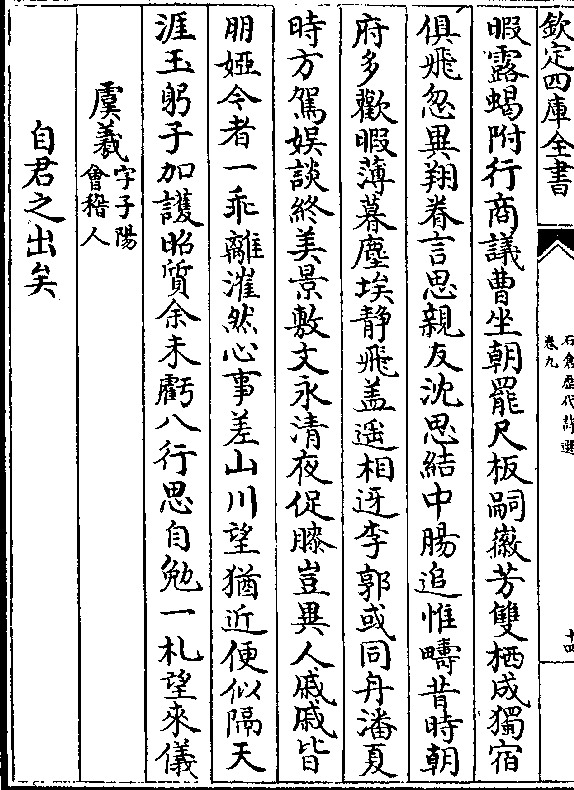 欽定四庫全書
石倉歷代詩選
卷九
十四
暇露蝎附行商議曹坐朝罷尺板嗣徽芳雙栖成獨宿
俱飛忽異翔眷言思親友沈思結中腸追惟疇昔時朝
府多歡暇薄暮塵埃静飛盖遥相迓李郭或同舟潘夏
時方駕娱談終美景敷文永清夜促膝豈異人戚戚皆
朋婭今者一乖離漼然心事差山川望猶近便似隔天
涯玉躬子加護昭質余未虧八行思自勉一札望來儀
虞羲字子陽會稽人
自君之出矣